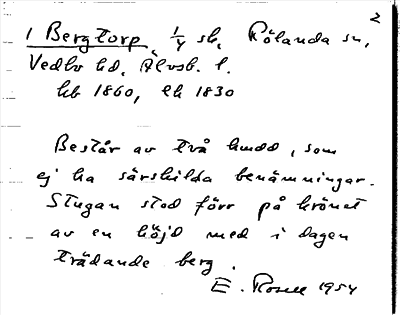 2
1 Bergtorp, 1/4 sk, Rölanda sn,
Vedbo hd, Älvsb. l.
hb 1860, ek 1830
Består av två hmdd, som
ej ha särskilda benämningar.
Stugan stod förr på krönet
av en höjd med i dagen
trädande berg.
E. Rosell 1954